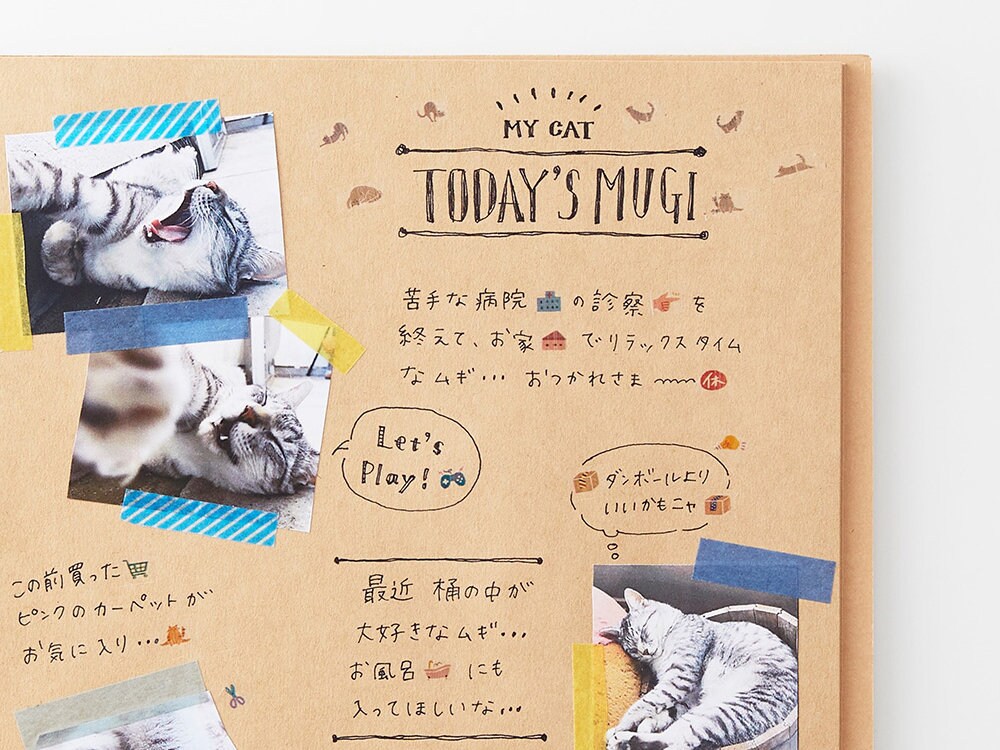 MY CAT
TODAY'S MUGI
苦手な病院の診察を
終えて、お家でリラックスタイム
なムギ… おつかれさま〜〜 休
Let's
Play!
ダンボールより
いいかもニャ
この前買った
ピンクのカーペットが
お気に入り…
最近 桶の中が
大好きなムギ…
お風呂にも
入ってほしいな…